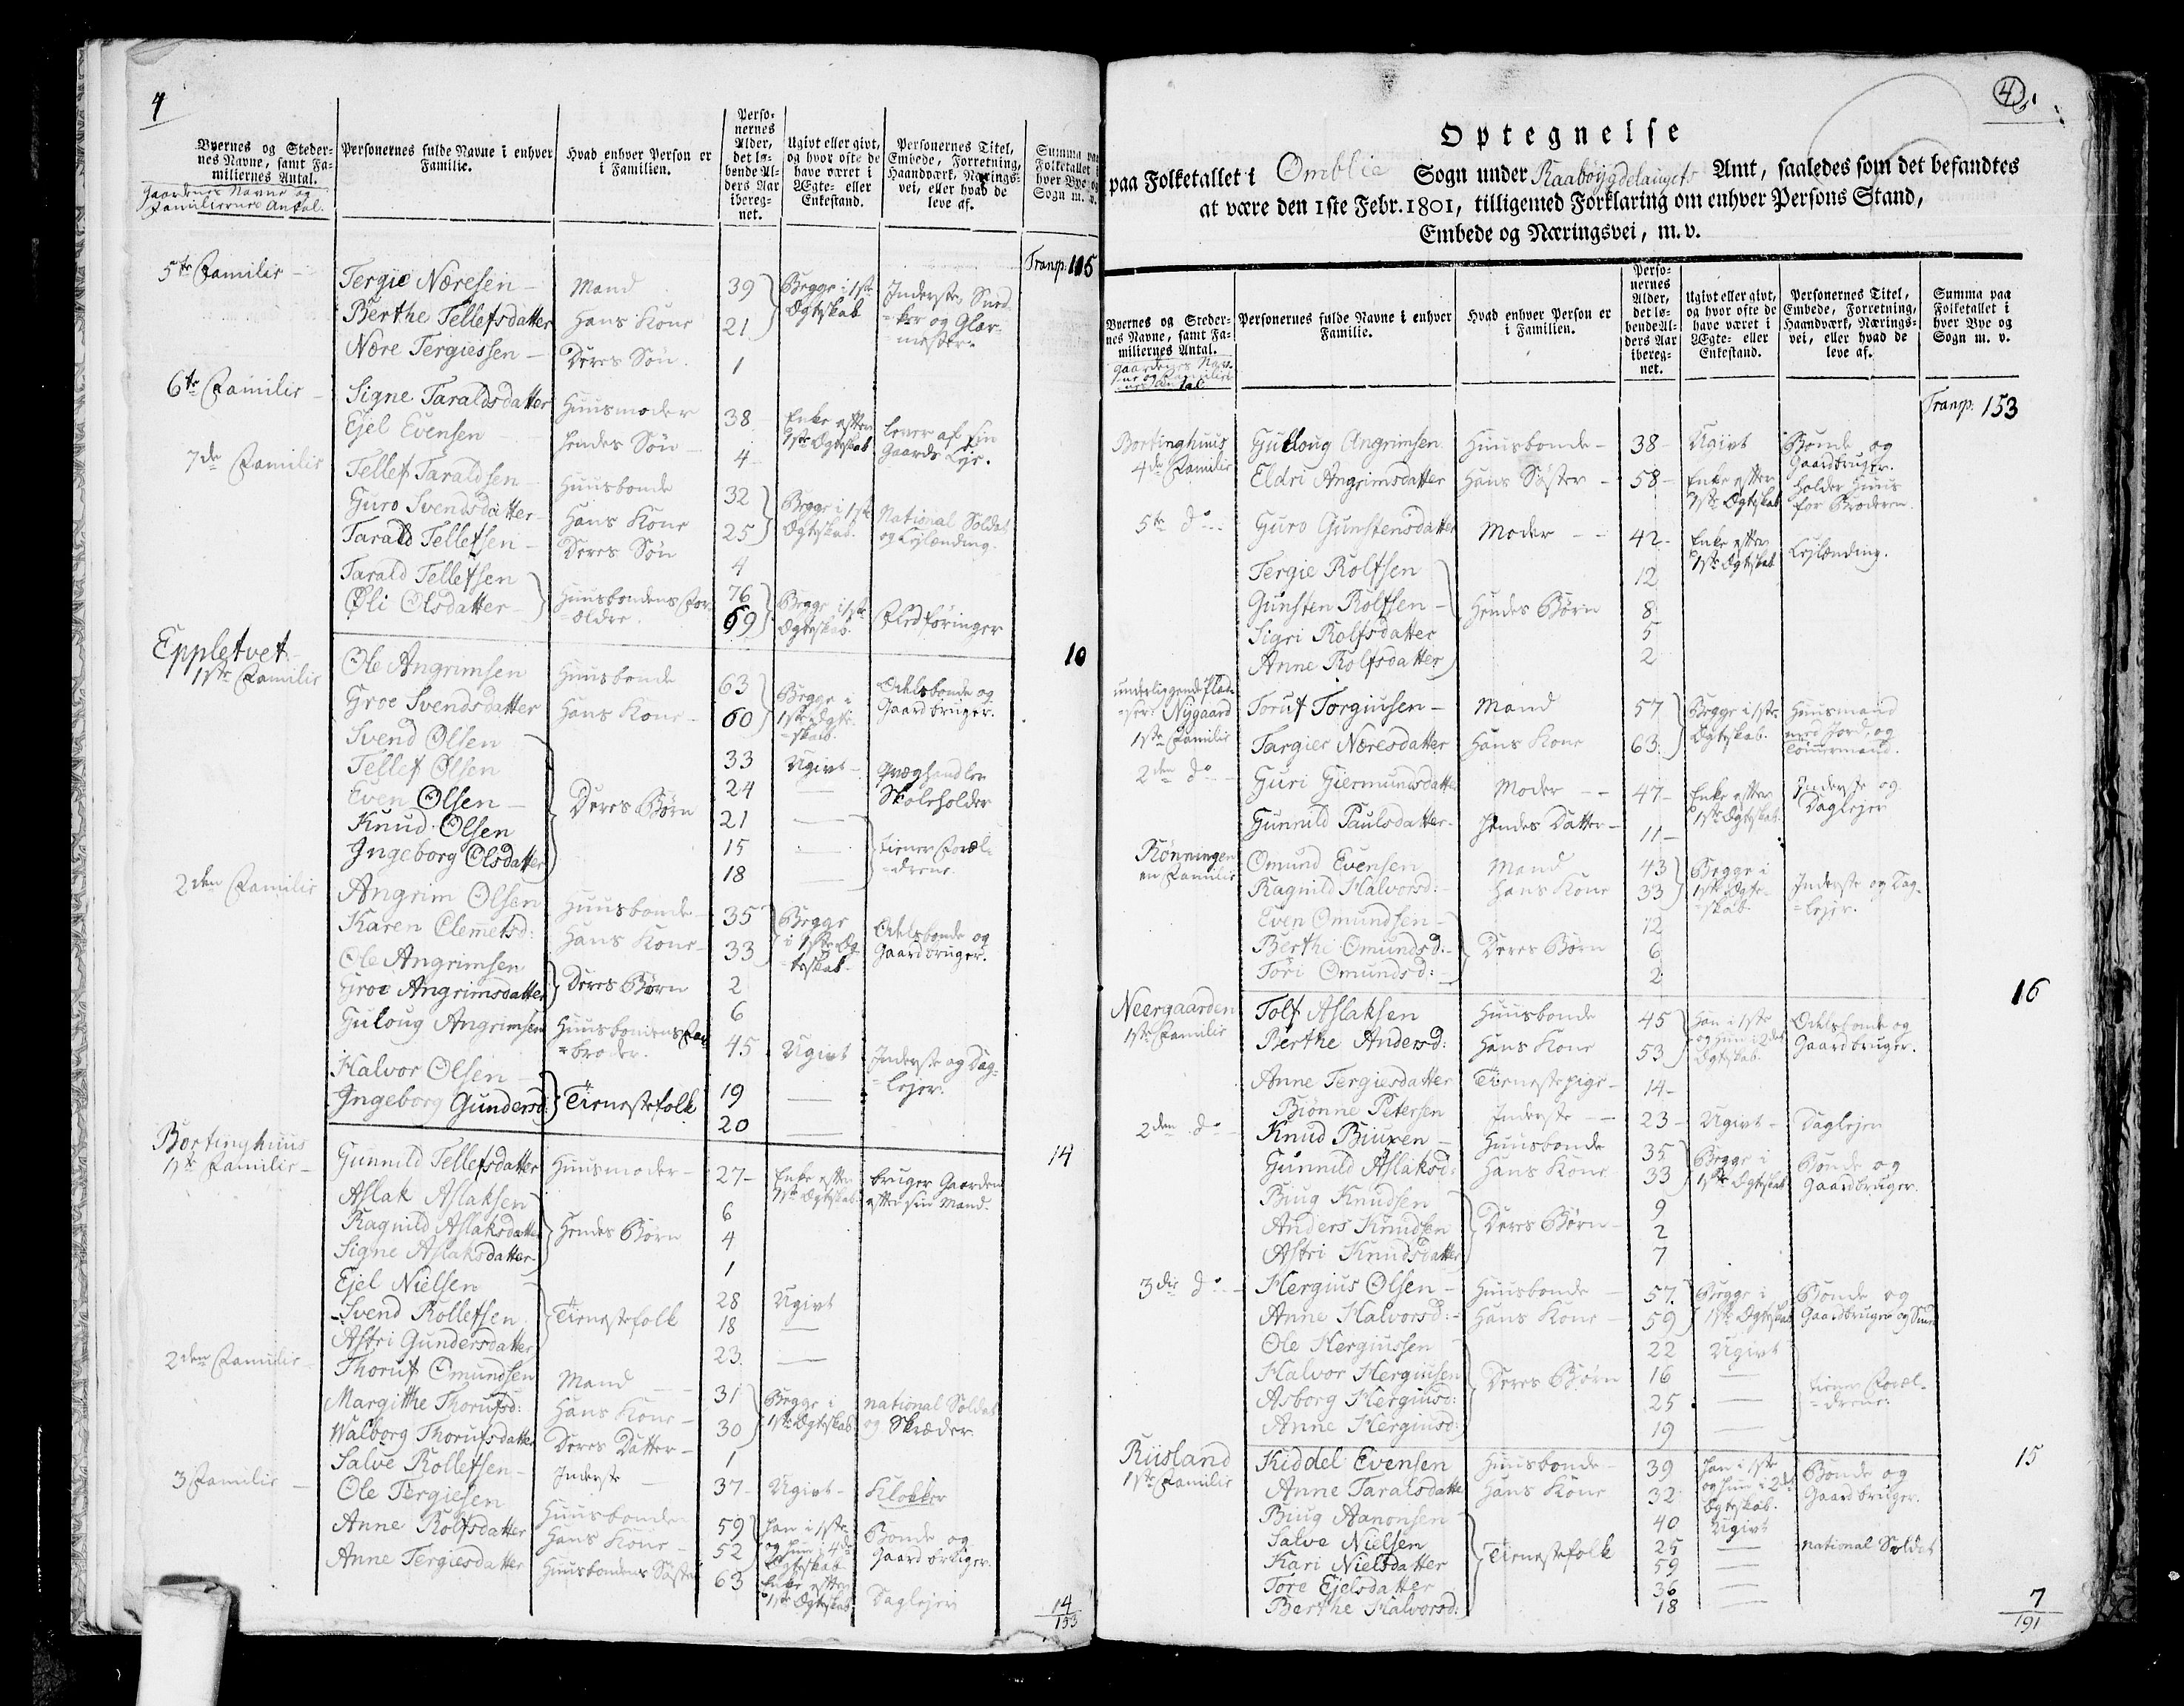 4
Byernes og Steder-
nes Navne, samt Fa-
miliernes Antal.
Gaardenes Navne og
Familiernes Antal.
Personernes fulde Navne i enhver
Familie.
Hvad enhver Person er
i Familien.
Perso-
nernes
Alder,
det lø-
bende Al-
ders Aar
ibereg-
net.
Ugivt eller givt,
og hvor ofte de
have været i
Ægte- eller
Enkestand.
Personernes Titel,
Embede, Forretning,
Haandværk, Nærings-
vei, eller hvad de
leve af.
Summa paa
Folketallet i
hver Bye og
Sogn m. v.
Transp: 105
5te Familie - Tergie Næresen - Mand 39 Begge i 1ste Ægteskab Inderste, Sned-
ker og Glar-
mester.
Berthe Tellefsdatter Hans Kone 21
Nære Tergiessen - Deres Søn 1
6te Familie - Signe Taraldsdatter Huusmoder 38 Enke efter 1ste Ægteskab Lever af sin Gaards Leje.
Ejel Evensen - Hendes Søn - 4
7de Familie Tellef Taraldsen - Huusbonde 32 Begge i 1ste Ægteskab. National Soldat og Lejlænding.
Guro Svendsdatter - Hans Kone 25
Tarald Tellefsen - Deres Søn 4
Tarald Tellefsen Huusbondens For-
ældre. 76 Begge i 1ste Ægteskab. Fledføringer
Øli Olsdatter - 69
10
Eppletvet
1ste Familie Ole Angrimsen Huusbonde 63 Begge i 1ste Ægte-
skab. Odelsbonde og Gaardbruger.
Groe Svendsdatter Hans Kone - 60
Svend Olsen Deres Børn 33 Ugivt - Qvæghandler
Tellef Olsen 24 — Skoleholder
Even Olsen - 21 —
Knud Olsen 15 — tiener Foræl-
drene.
Ingeborg Olsdatter 18 —
2den Familie Angrim Olsen Huusbonde - 35 Begge i 1ste Æg-
teskab. Odelsbonde og Gaardbruger.
Karen Clemetsd: Hans Kone - 33
Ole Angrimsen Deres Børn 2
Groe Angrimsdatter 6
Guloug Angrimsen Huusbondens Far-
broder. 45 Ugivt Inderste og Dag-
lejer.
Halvor Olsen - Tienestefolk 19 —
Ingeborg Gundersd: 20 —
14
Bortinghuus
1ste Familie - Gunnild Tellefsdatter Huusmoder - 27 - Enke efter 1ste Ægteskab bruger Gaarden efter sin Mand.
Aslak Aslaksen Hendes Børn 6
Ragnild Aslaksdatter 4
Signe Aslaksdatter 1
Ejel Nielsen Tienestefolk 28 Ugivt
Svend Rollefsen 18 —
Astri Gundersdatter 23 —
2den Familie - Thoruf Omundsen Mand 31 Begge i 1ste Ægteskab national Soldat og Skræder
Margitthe Thorufsd: Hans Kone - 30
Walborg Thorufsdatter Deres Datter - 1
Salve Rollefsen - Inderste 37 - Ugivt - Klokker
3 Familie - Ole Tergiesen Huusbonde 59 Han i 1ste og hun i 4de Ægteskab Bonde og Gaardbruger.
Anne Rolfsdatter Hans Kone - 52
Anne Tergiesdatter Huusbondens Søster 63 Enke efter 1ste Ægteskab Daglejer
14
153
4
Optegnelse
paa Folketallet i Omblie Sogn under Raaboygdelaugets Amt, saaledes som det befandtes
at være den 1ste Febr. 1801, tilligemed Forklaring om enhver Persons Stand,
Embede og Næringsvei, m. v.
Byernes og Steder-
nes Navne, samt Fa-
miliernes Antal.
Gaardenes Nav-
ne og Familier-
nes Antal
Personernes fulde Navne i enhver
Familie.
Hvad enhver Person er
i Familien.
Perso-
nernes
Alder,
det lø-
bende Al-
ders Aar
ibereg-
net.
Ugivt eller givt,
og hvor ofte de
have været i
Ægte- eller
Enkestand.
Personernes Titel,
Embede, Forretning,
Haandværk, Nærings-
vei, eller hvad de
leve af.
Summa paa
Folketallet i
hver Bye og
Sogn m. v.
Transp: 153
Bortinghuus
4de Familie Gulloug Angrimsen Huusbonde - 38 - Ugivt Bonde og Gaardbruger.
Eldri Angrimsdatter Hans Søster - 58 - Enke efter 1ste Ægteskab holder Huus for Broderen.
5te do - Guro Gunstensdatter Moder - - 42 - Enke efter 1ste Ægteskab Lejlænding.
Tergie Rolfsen Hendes Børn 12
Gunsten Rolfsen - 8
Sigri Rolfsdatter 5
Anne Rolfsdatter 2
underliggende Plad-
ser: Nygaard
1ste Familie Toruf Torgiusen - Mand 57 Begge i 1ste Ægteskab. Huusmand med Jord, og Tømmermand.
Targier Næresdatter Hans Kone 63
2den do - Guri Giermundsdatter Moder - - 47 - Enke efter 1ste Ægteskab. Inderste og Daglejer
Gunnild Paulsdatter - Hendes Datter - 11 -
Rønningen
en Familie Omund Evensen Mand 43 Begge i 1ste Ægte-
skab. Inderste og Dag-
lejer.
Ragnild Halvorsd: - Hans Kone 33
Even Omundsen - Deres Børn 12
Berthe Omundsd: - 6
Tori Omundsd: - 2
16
Neergaarden
1ste Familie Tolf Aslaksen Huusbonde 45 Han i 1ste og hun i 2det Ægteskab. Odelsbonde og Gaardbruger.
Berthe Andersd: Hans Kone 53
Anne Tergiesdatter Tienestepige - 14 -
Biønne Petersen Inderste - - 23 - Ugivt - Daglejer
2den do - Knud Biuxen - Huusbonde 35 Begge i 1ste Ægteskab Bonde og Gaardbruger.
Gunnild Aslaksd: Hans Kone 33
Biug Knudsen Deres Børn - 9
Anders Knudsen 2
Astri Knudsdatter 7
3die do - Hergius Olsen - Huusbonde - 57 Begge i 1ste Ægteskab Bonde og Gaardbruger og Smed
Anne Halvorsd: - Hans Kone - 59
Ole Hergiussen Deres Børn 22 Ugivt
Halvor Hergiusen 16 — tiener Foræl-
drene.
Asborg Hergiusd: 25 —
Anne Hergiusd: 19 —
15
Riisland
1ste Familie Kiddel Evensen Huusbonde - 39 Han i 1ste og hun i 2det Ægteskab. Bonde og Gaardbruger.
Anne Taralsdatter Hans Kone 32
Biug Aanonsen - Tienestefolk 40 Ugivt
Salve Nielsen 25 — national Soldat
Kari Nielsdatter 59 —
Tore Ejelsdatter 36 —
Berthe Halvorsd: 18 —
7
191